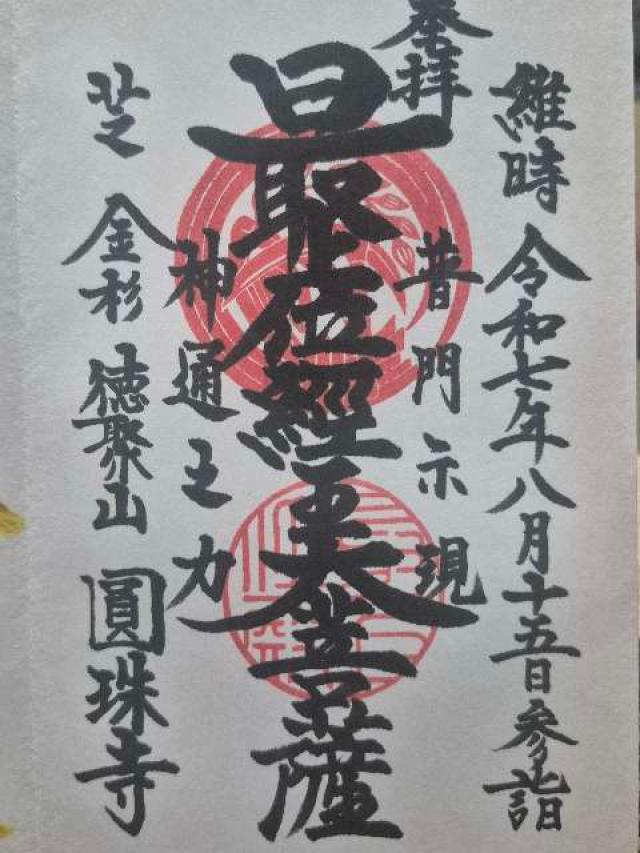 維時 令和七年八月十五日参詣
奉拝
普門示現
最上位經王大菩薩
神通之力
芝 金杉 徳聚山 圓珠寺